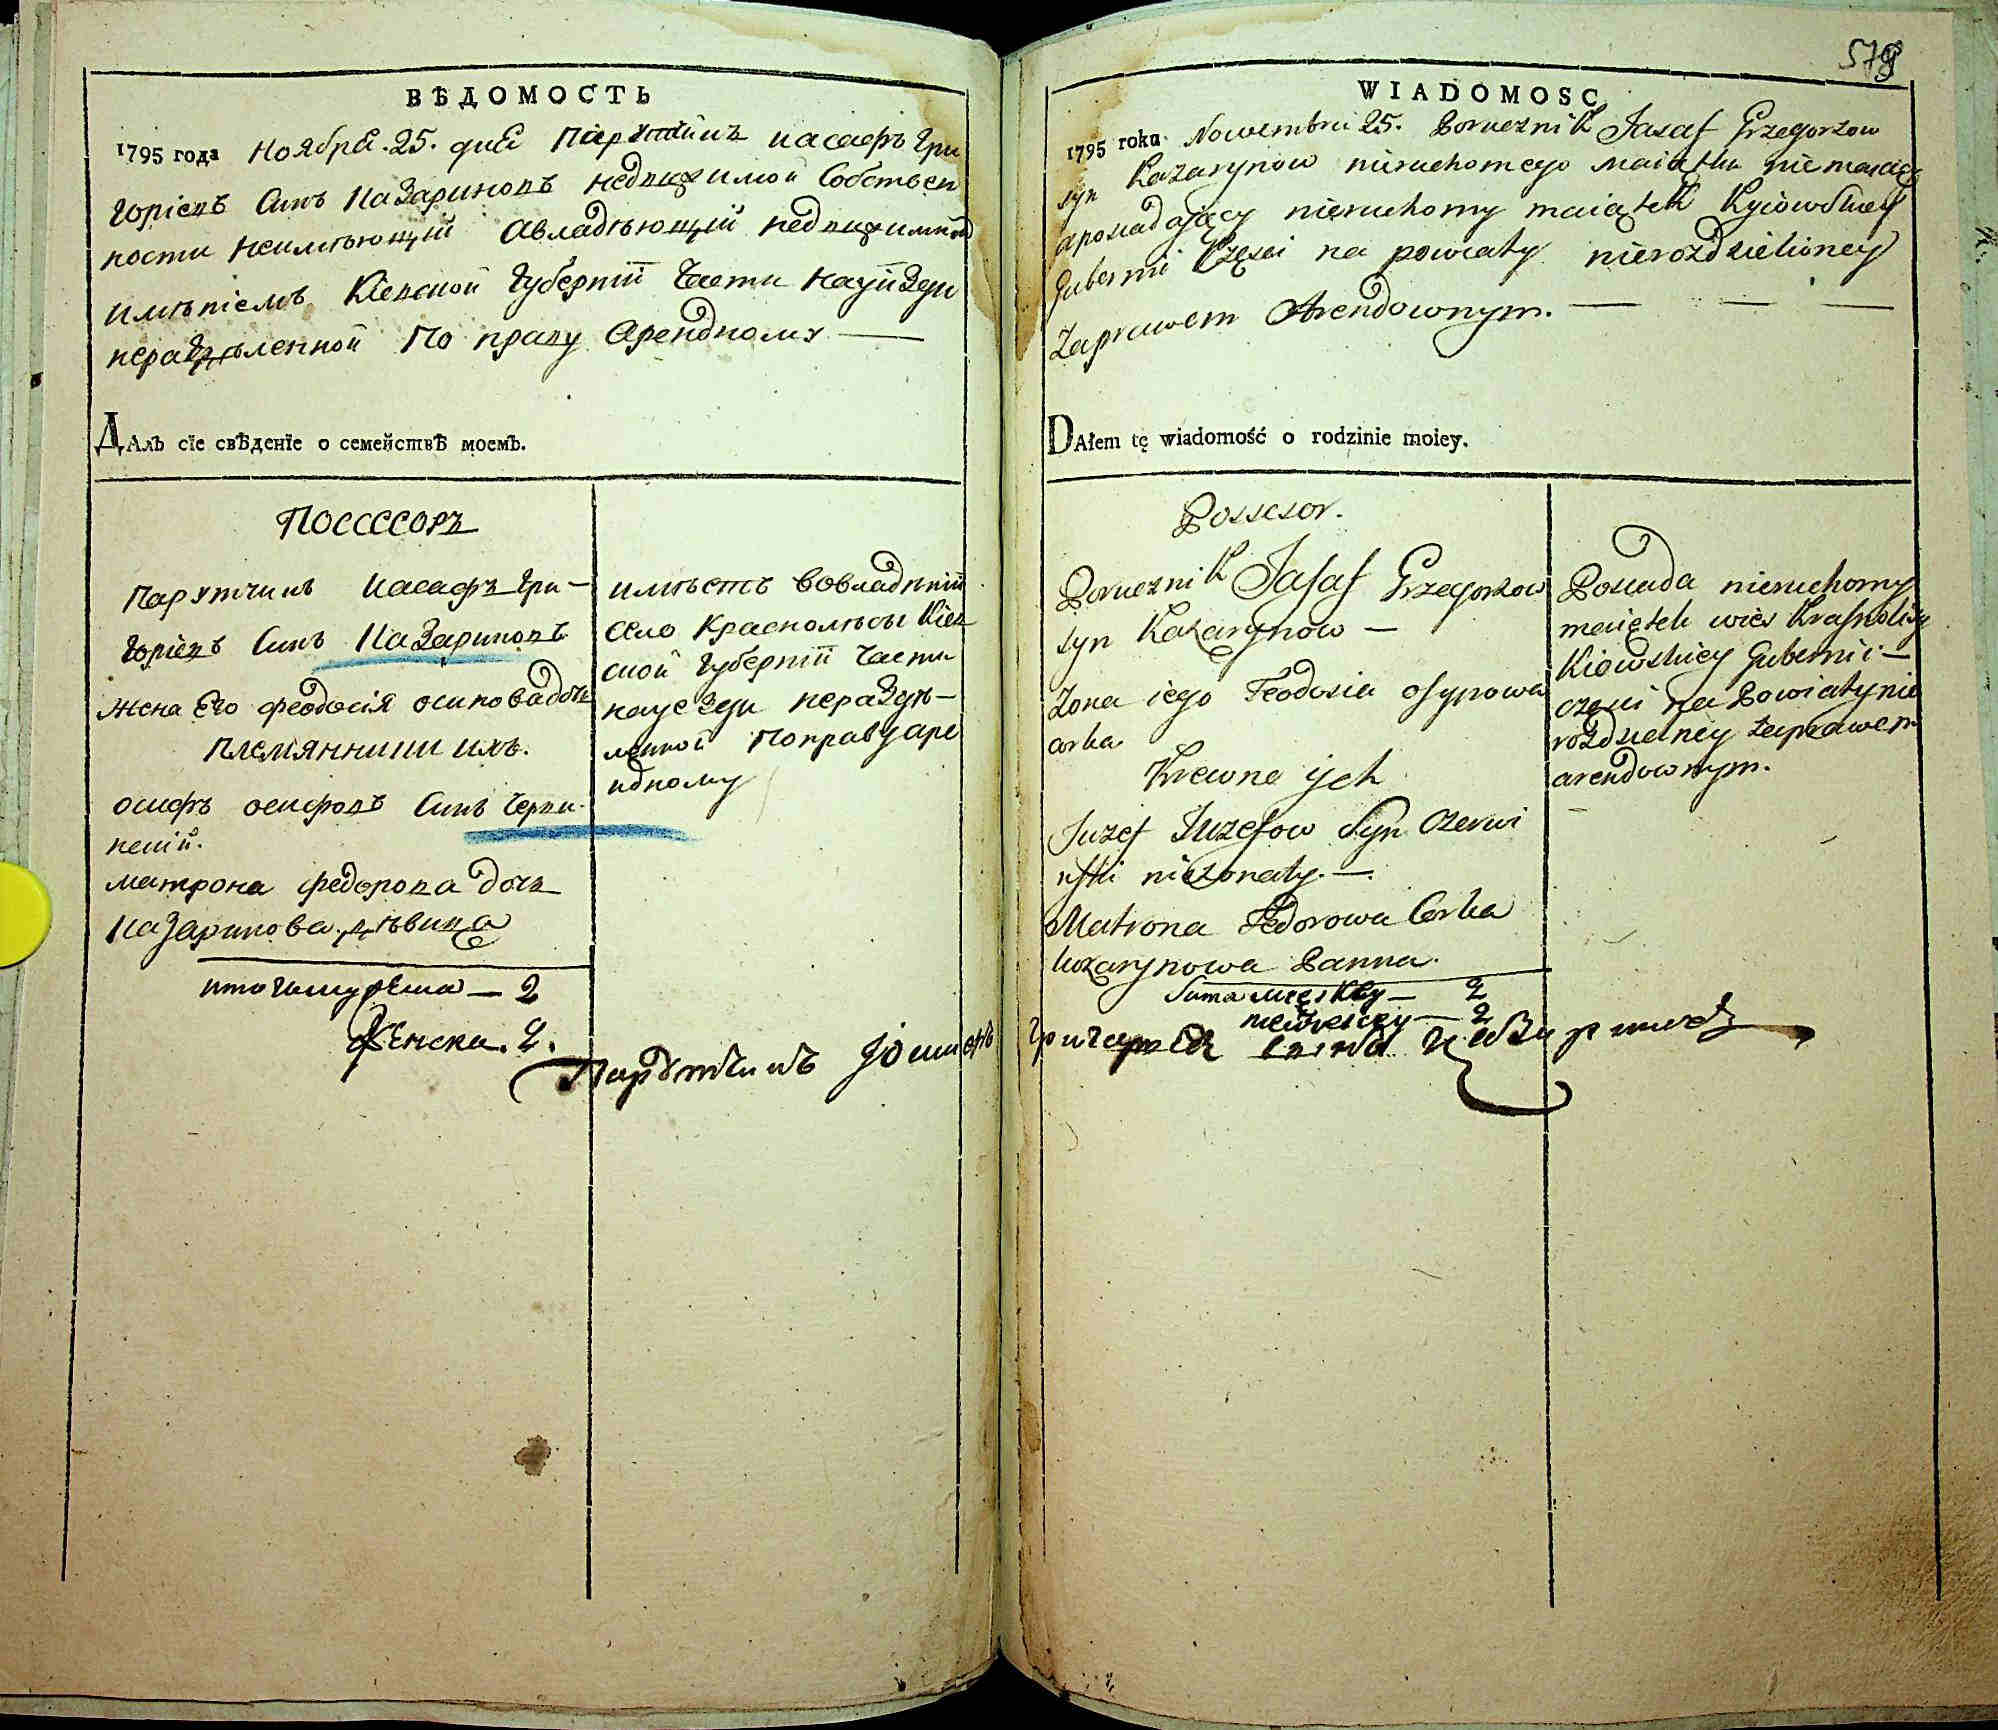 ВѢДОМОСТЬ
1795 года Ноября. 25. дня Парутчикъ Иасафъ Гри
горіевъ Синъ Казариновъ недвижимой Собствен
ности неимѣющій Авладѣющій недвижимимъ
имѣніемъ Кіевской Губерніи Части науизди
нераздѣленной По праву Арендному —
ДАлъ сїе свѣденїе о семействѢ моемъ.
Поссесоръ
Парутчикъ Иасафъ Гри–
горіевъ Синъ Казариновъ
жена Его феодосія осипова дочь
Племянники ихъ.
осифъ осифовъ Синъ Черви
нскій.
матрона федорова дочь
Казаринова дѣвица
итого мужеска — 2
Женска. 2.
имѣетъ вовладѣніи
Село Краснолѣсы Кіев
ской Губерніи Части
науезди нераздѣ–
ленной Поправу аре
ндному
Парутчикъ Іоасафъ
578
WIADOMOSC
1795 roku Nowembra 25. Porucznik Jasaf Grzegorzow
syn Kazarynow nieruchomego maiątku niemaiący
aposiadaiący nieruchomy maiątek Kyiowskiey
Gubernii Części na powiaty nierozdzielioney
Zaprawem Arendownym. — — —
DAłem tę wiadomość o rodzinie moiey.
Possesor.
Porucznik Jasaf Grzegorzow
syn Kazarynow —
Zona iego Teodosia osypowa
corka
Krewne ych
Juzef Juzefow Syn Czerwi
nski niezonaty. —
Matrona Fedorowa Corka
kozarynowa Panna.
Suma męskiey — 2
nieweściey — 2
Posiada nieruchomy
maiątek wies Krasnolisy
Kiowskiey Gubernii —
części na Powiaty nie
rozdzielney zaprawem
arendownym.
Григориевъ синъ Казариновъ